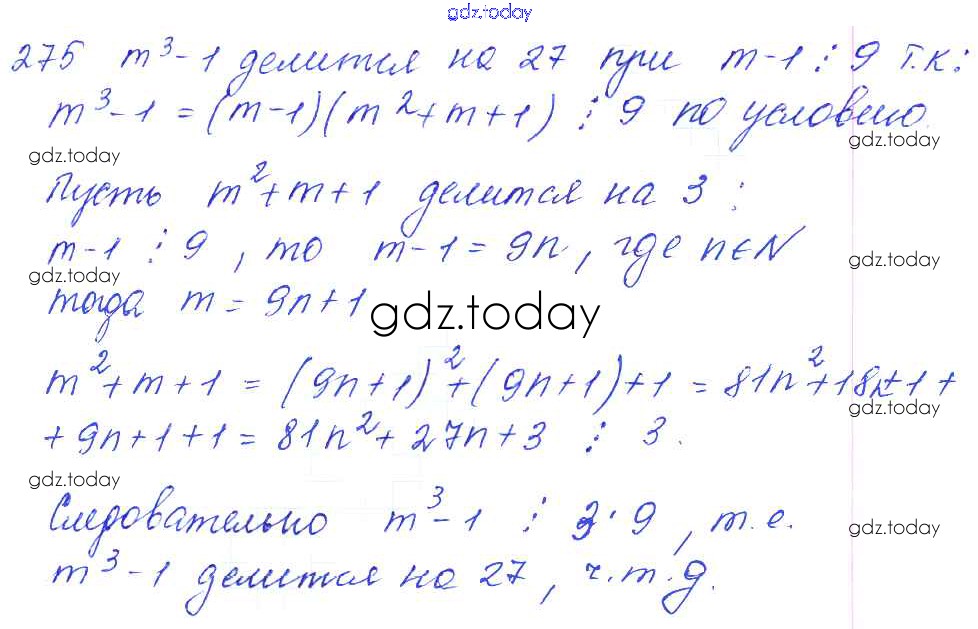 gdz.today
275 m³-1 делится на 27 при m-1 ⋮ 9 т.к:
m³-1 = (m-1)(m²+m+1) ⋮ 9 по условию.
gdz.today gdz.today
Пусть m²+m+1 делится на 3 :
m-1 ⋮ 9, то m-1 = 9n, где n∈N
gdz.today gdz.today
тогда m = 9n+1
gdz.today
m²+m+1 = (9n+1)²+(9n+1)+1 = 81n²+18n+1+
gdz.today
+9n+1+1 = 81n²+27n+3 ⋮ 3.
gdz.today
Следовательно m³-1 ⋮ 3·9, т.е.
gdz.today
m³-1 делится на 27, ч.т.д.